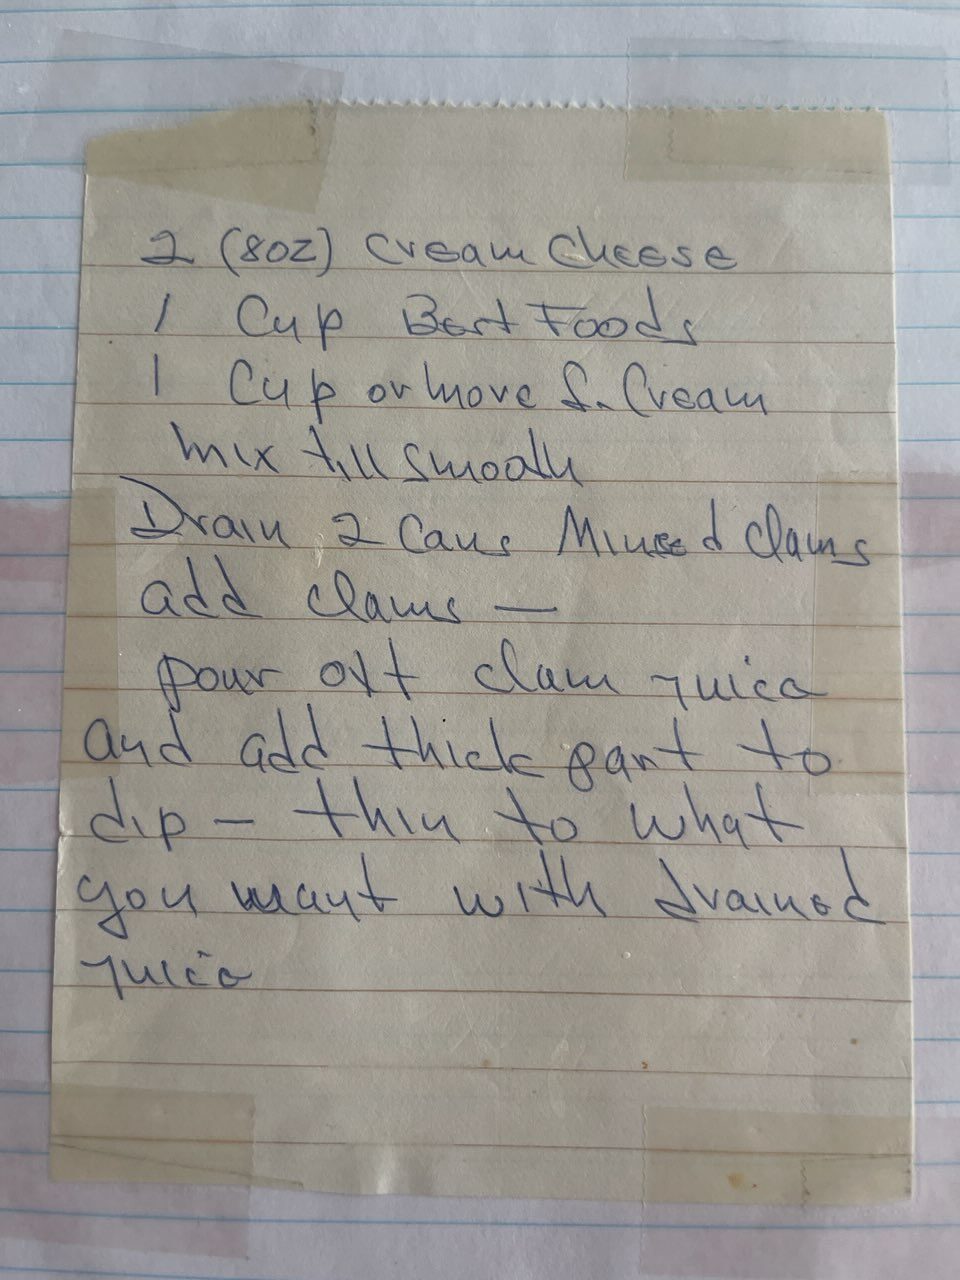 2 (8oz) Cream Cheese
1 Cup Best Foods
1 Cup or more S. Cream
mix till smooth
Drain 2 Cans Minced Clams
add clams —
pour off clam juice
and add thick part to
dip - thin to what
you want with drained
juice